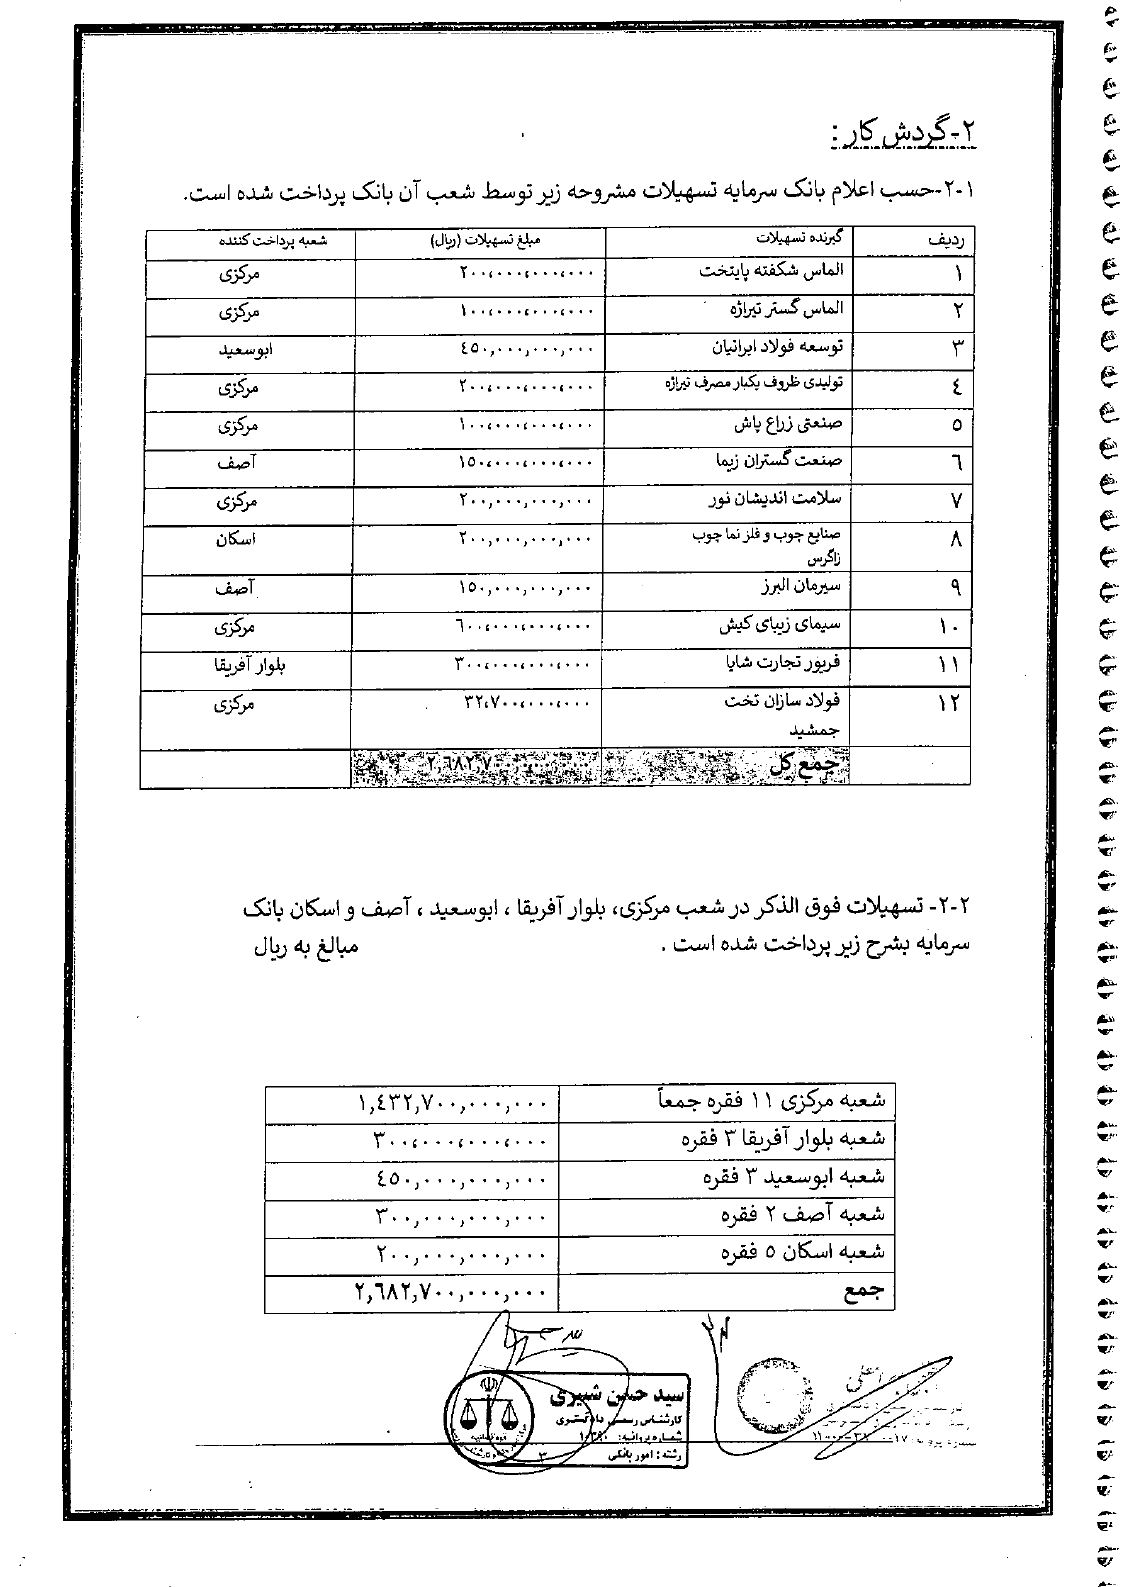 ۲-گردش کار :
۲-۱-حسب اعلام بانک سرمایه تسهیلات مشروحه زیر توسط شعب آن بانک پرداخت شده است.
ردیف گیرنده تسهیلات مبلغ تسهیلات (ریال) شعبه پرداخت کننده
۱ الماس شکفته پایتخت ۲۰۰،۰۰۰،۰۰۰،۰۰۰ مرکزی
۲ الماس گستر تیراژه ۱۰۰،۰۰۰،۰۰۰،۰۰۰ مرکزی
۳ توسعه فولاد ایرانیان ٤٥۰,۰۰۰,۰۰۰,۰۰۰ ابوسعید
٤ تولیدی ظروف یکبار مصرف تیراژه ۲۰۰،۰۰۰،۰۰۰،۰۰۰ مرکزی
٥ صنعتی زراع پاش ۱۰۰،۰۰۰،۰۰۰،۰۰۰ مرکزی
٦ صنعت گستران زیما ۱٥۰،۰۰۰،۰۰۰،۰۰۰ آصف
۷ سلامت اندیشان نور ۲۰۰,۰۰۰,۰۰۰,۰۰۰ مرکزی
۸ صنایع چوب و فلز نما چوب ۲۰۰,۰۰۰,۰۰۰,۰۰۰ اسکان
زاگرس
۹ سیرمان البرز ۱٥۰,۰۰۰,۰۰۰,۰۰۰ آصف
۱۰ سیمای زیبای کیش ٦۰۰،۰۰۰،۰۰۰،۰۰۰ مرکزی
۱۱ فریور تجارت شایا ۳۰۰،۰۰۰،۰۰۰،۰۰۰ بلوار آفریقا
۱۲ فولاد سازان تخت ۳۲،۷۰۰،۰۰۰،۰۰۰ مرکزی
جمشید
جمع کل ۲,٦۸۲,۷۰۰,۰۰۰,۰۰۰
۲-۲- تسهیلات فوق الذکر در شعب مرکزی، بلوار آفریقا ، ابوسعید ، آصف و اسکان بانک
سرمایه بشرح زیر پرداخت شده است . مبالغ به ریال
شعبه مرکزی ۱۱ فقره جمعاً ۱,٤۳۲,۷۰۰,۰۰۰,۰۰۰
شعبه بلوار آفریقا ۳ فقره ۳۰۰،۰۰۰،۰۰۰،۰۰۰
شعبه ابوسعید ۳ فقره ٤٥۰,۰۰۰,۰۰۰,۰۰۰
شعبه آصف ۲ فقره ۳۰۰,۰۰۰,۰۰۰,۰۰۰
شعبه اسکان ٥ فقره ۲۰۰,۰۰۰,۰۰۰,۰۰۰
جمع ۲,٦۸۲,۷۰۰,۰۰۰,۰۰۰
سید حسن شبیری
کارشناس رسمی دادگستری
شماره پروانه:
رشته : امور بانکی
۳